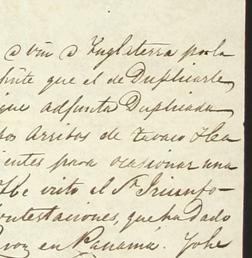 a Vm a Inglaterra por la
que el de Duplicarle
que adjunta Duplicada
dos arribos de
entes para ocasionar una
He visto el Sr Triunfo-
ontestaciones, que ha Dado
en Panamá. Yo he